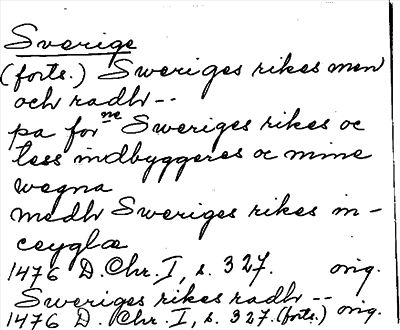 Sverige
(forts.) Sweriges rikes men
och radh--
pa forne Sweriges rikes oc
tess indbyggeres oc mine
wegna
medh Sweriges rikes in-
ceyglæ
1476 D. Chr. I, s. 327. orig.
Sweriges rikes radh --
1476 D. Chr. I, s. 327. (forts.) orig.